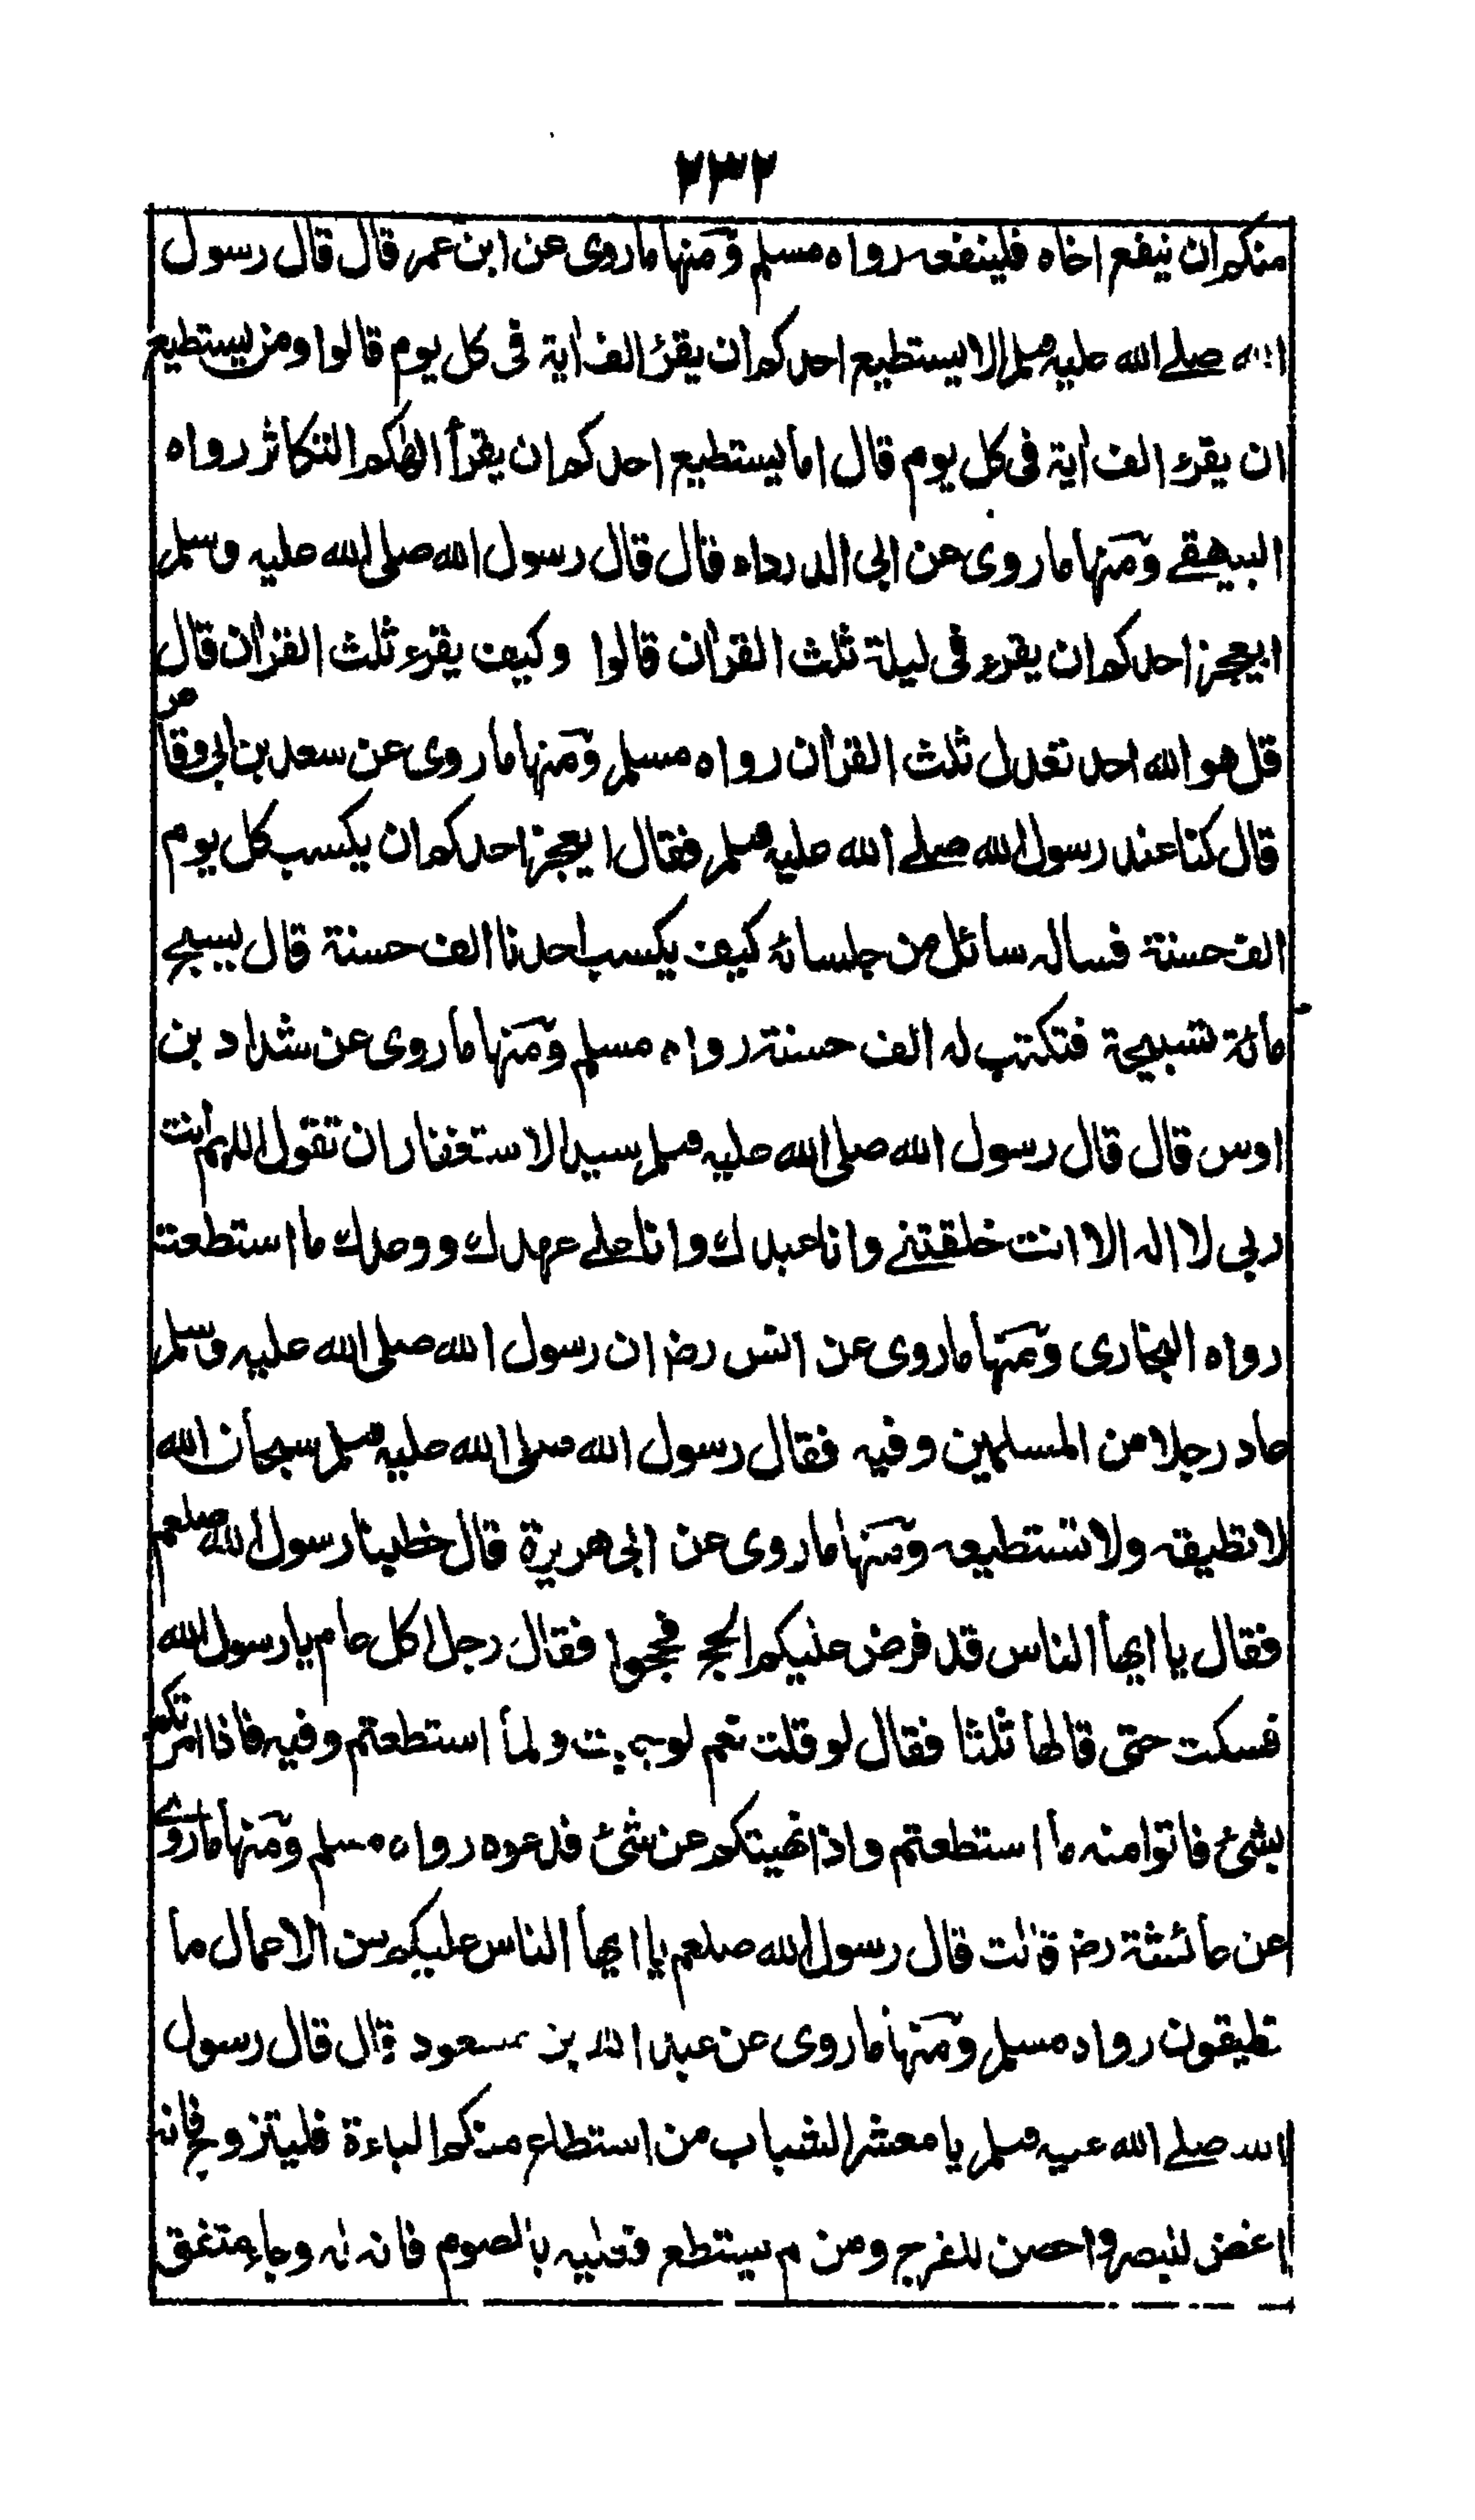 ٢٣٢
منكم ان ينفع اخاه فلينفعه رواه مسلم ومنها ماروى عن ابن عمر قال قال رسول
الله صلے الله عليه وسلم الا يستطيع احدكم ان يقرئ الف اية فى كل يوم قالوا ومن يستطيع
ان يقرء الف اية فى كل يوم قال اما يستطيع احدكم ان يقرأ الهٰكم التكاثر رواه
البيهقے ومنها ماروى عن ابى الدرداء قال قال رسول الله صلى الله عليه وسلم
ايعجز احدكم ان يقرء فى ليلة ثلث القران قالوا وكيف يقرء ثلث القران قال
قل هو الله احد تعدل ثلث القران رواه مسلم ومنها ماروى عن سعد بن ابى وقاص
قال كنا عند رسول الله صلے الله عليه وسلم فقال ايعجز احدكم ان يكسب كل يوم
الف حسنة فساله سائل من جلسائه كيف يكسب احدنا الف حسنة قال يسبح
مائة تسبيحة فتكتب له الف حسنة رواه مسلم ومنها ماروى عن شداد بن
اوس قال قال رسول الله صلى الله عليه وسلم سيد الاستغفار ان تقول اللهم انت
ربى لا اله الا انت خلقتنے وانا عبدك وانا علے عهدك ووعدك ما استطعت
رواه البخارى ومنها ماروى عن انس رض ان رسول الله صلى الله عليه وسلم
عاد رجلا من المسلمين وفيه فقال رسول الله صلى الله عليه وسلم سبحان الله
لا تطيقه ولا تستطيعه ومنها ماروى عن ابى هريرة قال خطبنا رسول الله صلعم
فقال يا ايها الناس قد فرض عليكم الحج فحجوا فقال رجل اكل عام يا رسول الله
فسكت حتى قالها ثلثا فقال لو قلت نعم لوجبت ولما استطعتم وفيه فاذا امرتكم
بشئ فاتوا منه ما استطعتم واذا نهيتكم عن شئ فدعوه رواه مسلم ومنها ماروے
عن عائشة رض قالت قال رسول الله صلعم يا ايها الناس عليكم من الاعمال ما
تطيقون رواه مسلم ومنها ماروى عن عبد الله بن مسعود قال قال رسول
الله صلے الله عليه وسلم يا معشر الشباب من استطاع منكم الباءة فليتزوج فانه
اغض للبصر واحصن للفرج ومن لم يستطع فعليه بالصوم فانه له وجاء متفق